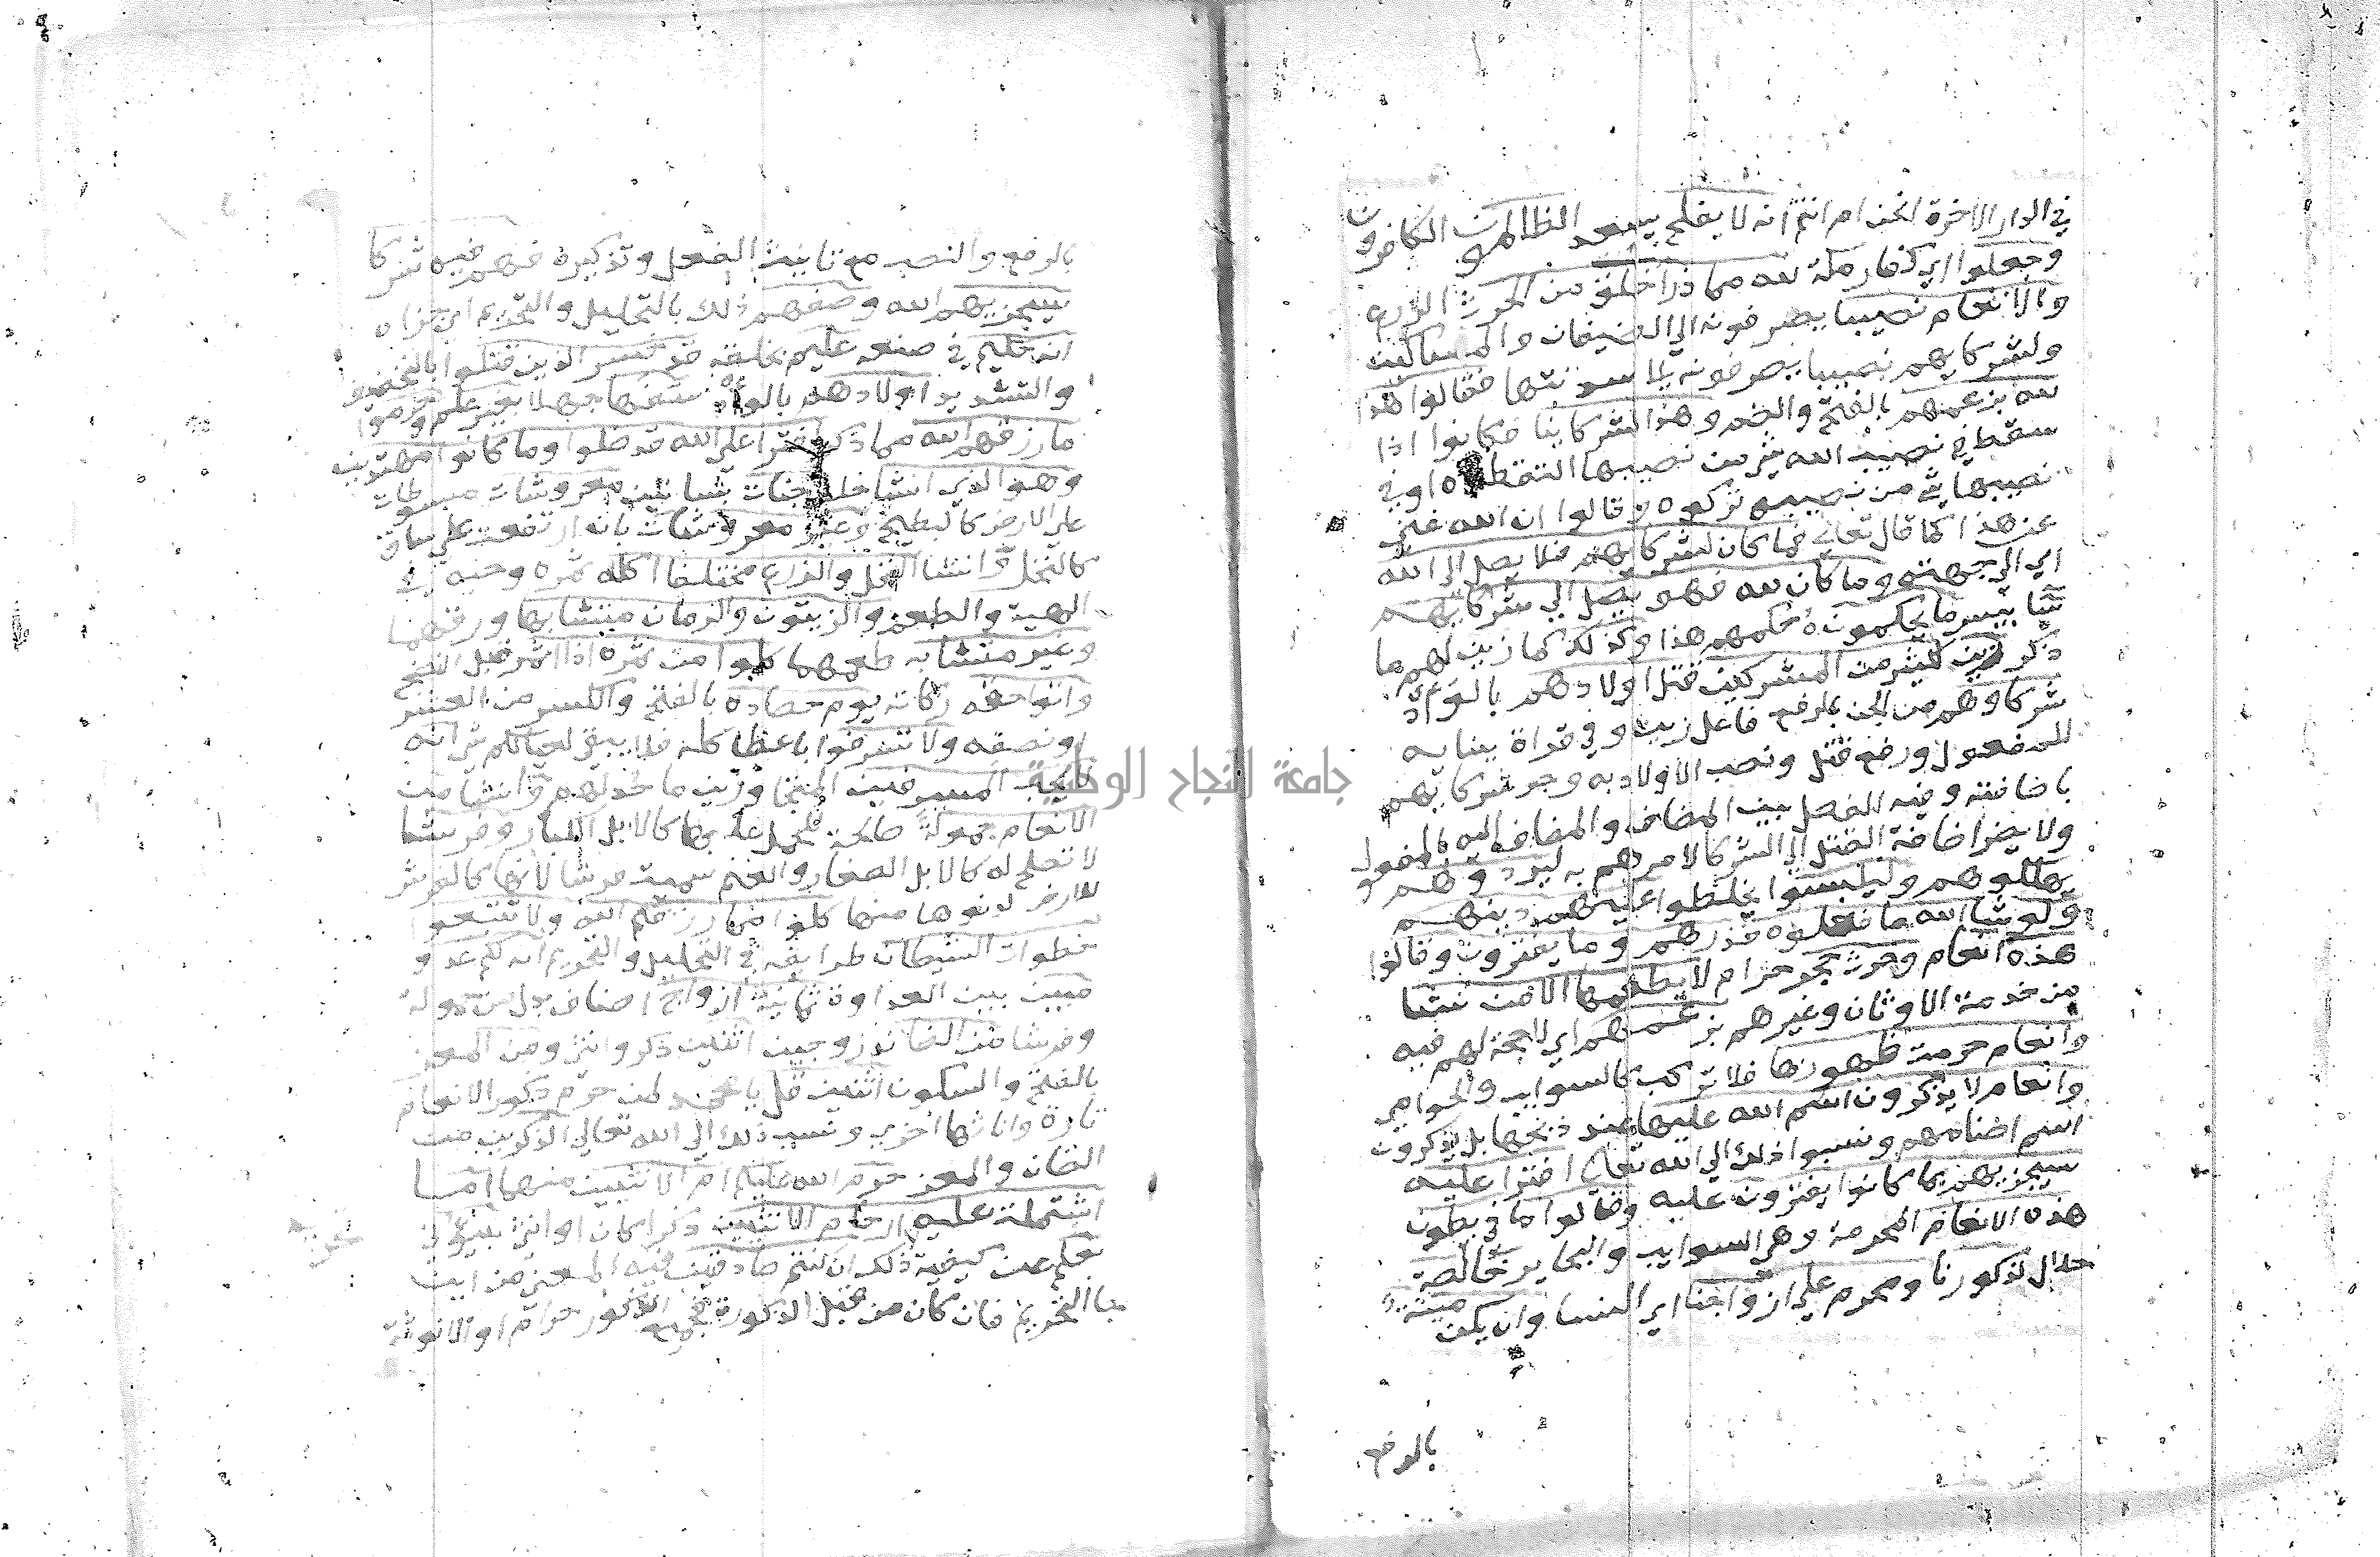 في الدار الاخرة انحن ام انتم انه لا يفلح يسعد الظالمون الكافرون
وجعلوا اي كفار مكة لله مما ذرا خلق من الحرث الزرع
والانعام نصيبا يصرفونه الي الضيفان والمساكين
ولشركايهم نصيبا يصرفونه الي سدنتها فقالوا هذا
لله بزعمهم بالفتح والضم وهذا لشركاينا فكانوا اذا
سقط في نصيب الله شي من نصيبها التقطوه او في
نصيبها شي من نصيبه تركوه وقالوا ان الله غني
عن هذا كما قال تعالي فما كان لشركايهم فلا يصل الي الله
اي الي جهته وما كان لله فهو يصل الي شركايهم
سا بيس ما يحكمون حكمهم هذا وكذلك كما زين لهم ما
ذكر زين لكثير من المشركين قتل اولادهم بالواد
شركاوهم من الجن بالرفع فاعل زين وفي قراة ببنايه
للمفعول ورفع قتل ونصب الاولاد به وجر شركايهم
باضافته وفيه الفصل بين المضاف والمضاف اليه بالمفعول
ولا يضر اضافة القتل الي الشركا لامرهم به ليردوهم
يهلكوهم وليلبسوا يخلطوا عليهم دينهم
ولو شا الله ما فعلوه فذرهم وما يفترون وقالوا
هذه انعام وحرث حجر حرام لا يطعمها الا من نشا
من خدمة الاوثان وغيرهم بزعمهم اي لا حجة لهم فيه
وانعام حرمت ظهورها فلا تركب كالسوايب والحوامي
وانعام لا يذكرون اسم الله عليها عند ذبحها بل يذكرون
اسم اصنامهم ونسبوا ذلك الي الله تعالي افترا عليه
سيجزيهم بما كانوا يفترون عليه وقالوا ما في بطون
هذه الانعام المحرمة وهي السوايب والبحاير خالصة
حلال لذكورنا ومحرم علي ازواجنا اي النسا وان يكن ميتة
بالرفع
بالرفع والنصب مع تانيث الفعل وتذكيره فهم فيه شركا
سيجزيهم الله وصفهم ذلك بالتحليل والتحريم اي جزاه
انه حكيم في صنعه عليم بخلقه قد خسر الذين قتلوا بالتخفيف
والتشديد اولادهم بالواد سفها جهلا بغير علم وحرموا
ما رزقهم الله مما ذكر افترا علي الله قد ضلوا وما كانوا مهتدين
وهو الذي انشا خلق جنات بساتين معروشات مبسوطات
علي الارض كالبطيخ وغير معروشات بان ارتفعت علي ساق
كالنخل وانشا النخل والزرع مختلفا اكله ثمره وحبه في
الهية والطعم والزيتون والرمان متشابها ورقهما
وغير متشابه طعمهما كلوا من ثمره اذا اثمر قبل النضج
واتوا حقه زكاته يوم حصاده بالفتح والكسر من العشر
او نصفه ولا تسرفوا باعطا كله فلا يبقي لعيالكم شي انه
لا يحب المسرفين المتجاوزين ما حد لهم وانشا من
الانعام حمولة صالحة للحمل عليها كالابل الكبار وفرشا
لا تصلح له كالابل الصغار والغنم سميت فرشا لانها كالفرش
للارض لدنوها منها كلوا مما رزقكم الله ولا تتبعوا
خطوات الشيطان طرايقه في التحليل والتحريم انه لكم عدو
مبين بين العداوة ثمانية ازواج اصناف بدل من حمولة
وفرشا من الضان زوجين اثنين ذكر وانثي ومن المعز
بالفتح والسكون اثنين قل يا محمد لمن حرم ذكور الانعام
تارة واناثها اخري ونسب ذلك الي الله تعالي الذكرين من
الضان والمعز حرم الله عليكم ام الانثيين منهما اما
اشتملت عليه ارحام الانثيين ذكرا كان او انثي نبيوني
بعلم عن كيفية ذلك ان كنتم صادقين فيه المعني من اين
جا التحريم فان كان من قبل الذكورة فجميع الذكور حرام او الانوثة
جامعة النجاح الوطنية